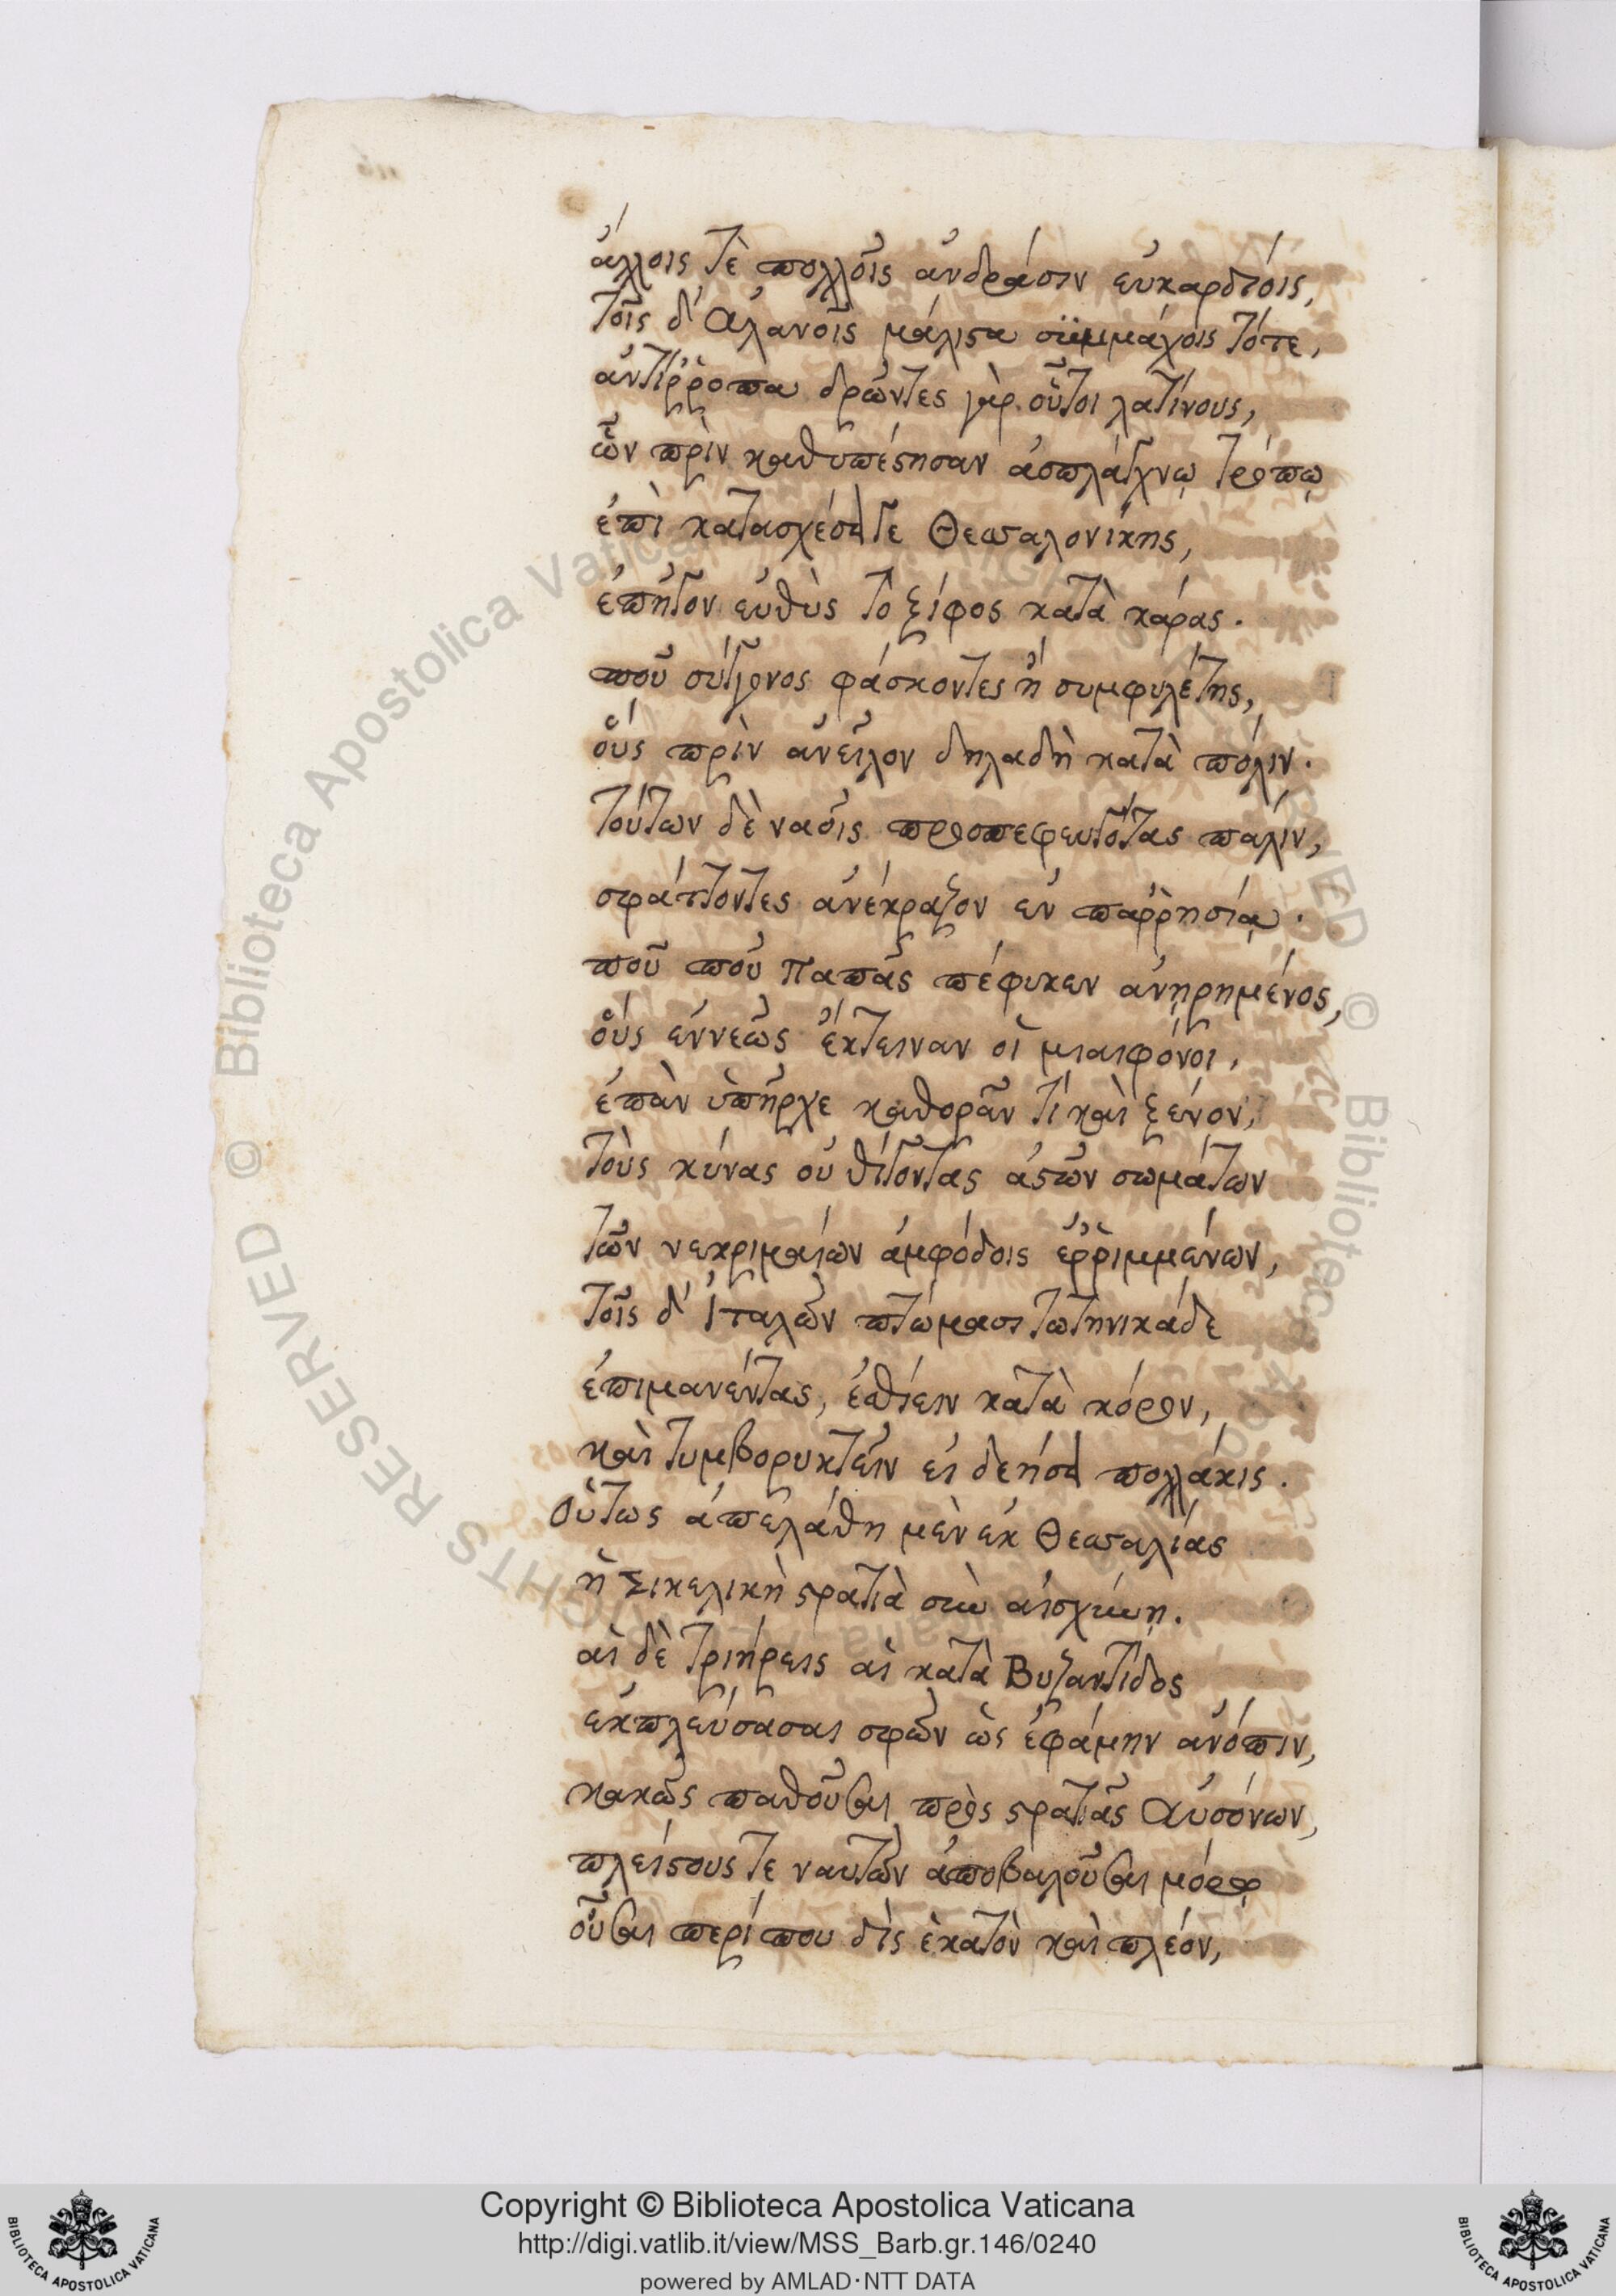 ἄλλοις τὲ πολλοῖς ἀνδράσιν εὐκαρδίοις,
τοῖς δ' Ἀλανοῖς μάλιστα συμμάχοις τότε,
ἀντίῤῥοπα δρῶντες γὰρ οὗτοι λατίνους,
ὧν πρὶν καθυπέστησαν ἀσπλάγχνῳ τρόπῳ
ἐπὶ κατασχέσει τε Θεσσαλονίκης,
ἐπῆγον εὐθὺς τὸ ξίφος κατὰ κάρας.
ποῦ σύγγονος φάσκοντες ἢ συμφυλέτης,
οὓς πρὶν ἀνεῖλον δηλαδὴ κατὰ πόλιν.
τούτων δὲ ναοῖς προσπεφευγότας παλίν,
σφάττοντες ἀνέκραζον ἐν παῤῥησίᾳ.
ποῦ ποῦ παπᾶς πέφυκεν ἀνῃρημένος,
οὓς ἐννεῶς ἔκτειναν οἱ μιαιφόνοι,
ἐπὰν ὑπῆρχε καθορᾶν τί καὶ ξένον,
τοὺς κύνας οὐ θίγοντας ἀστῶν σωμάτων
τῶν νεκριμαίων ἀμφόδοις ἐῤῥιμμένων,
τοῖς δ' Ἰταλῶν πτώμασι τωτηνικάδε
ἐπιμανέντας, ἐσθίειν κατὰ κόρον,
καὶ τυμβορυκτεῖν εἰ δεήσει πολλάκις.
Οὕτως ἀπελάθη μὲν ἐκ Θεσσαλίας
ἡ Σικελικὴ στρατιὰ σὺν αἰσχύνῃ.
αἱ δὲ τριήρεις αἱ κατὰ Βυζαντίδος
ἐκπλεύσασαι σφῶν ὡς ἐφάμην ἀνόπιν,
κακῶς παθοῦσαι πρὸς στρατιᾶς Αὐσόνων,
πλείστους τε ναυτῶν ἀποβαλοῦσαι μόρῳ
οὖσαι περίπου δὶς ἑκατὸν καὶ πλέον,
Copyright © Biblioteca Apostolica Vaticana
http://digi.vatlib.it/view/MSS_Barb.gr.146/0240
powered by AMLAD·NTT DATA